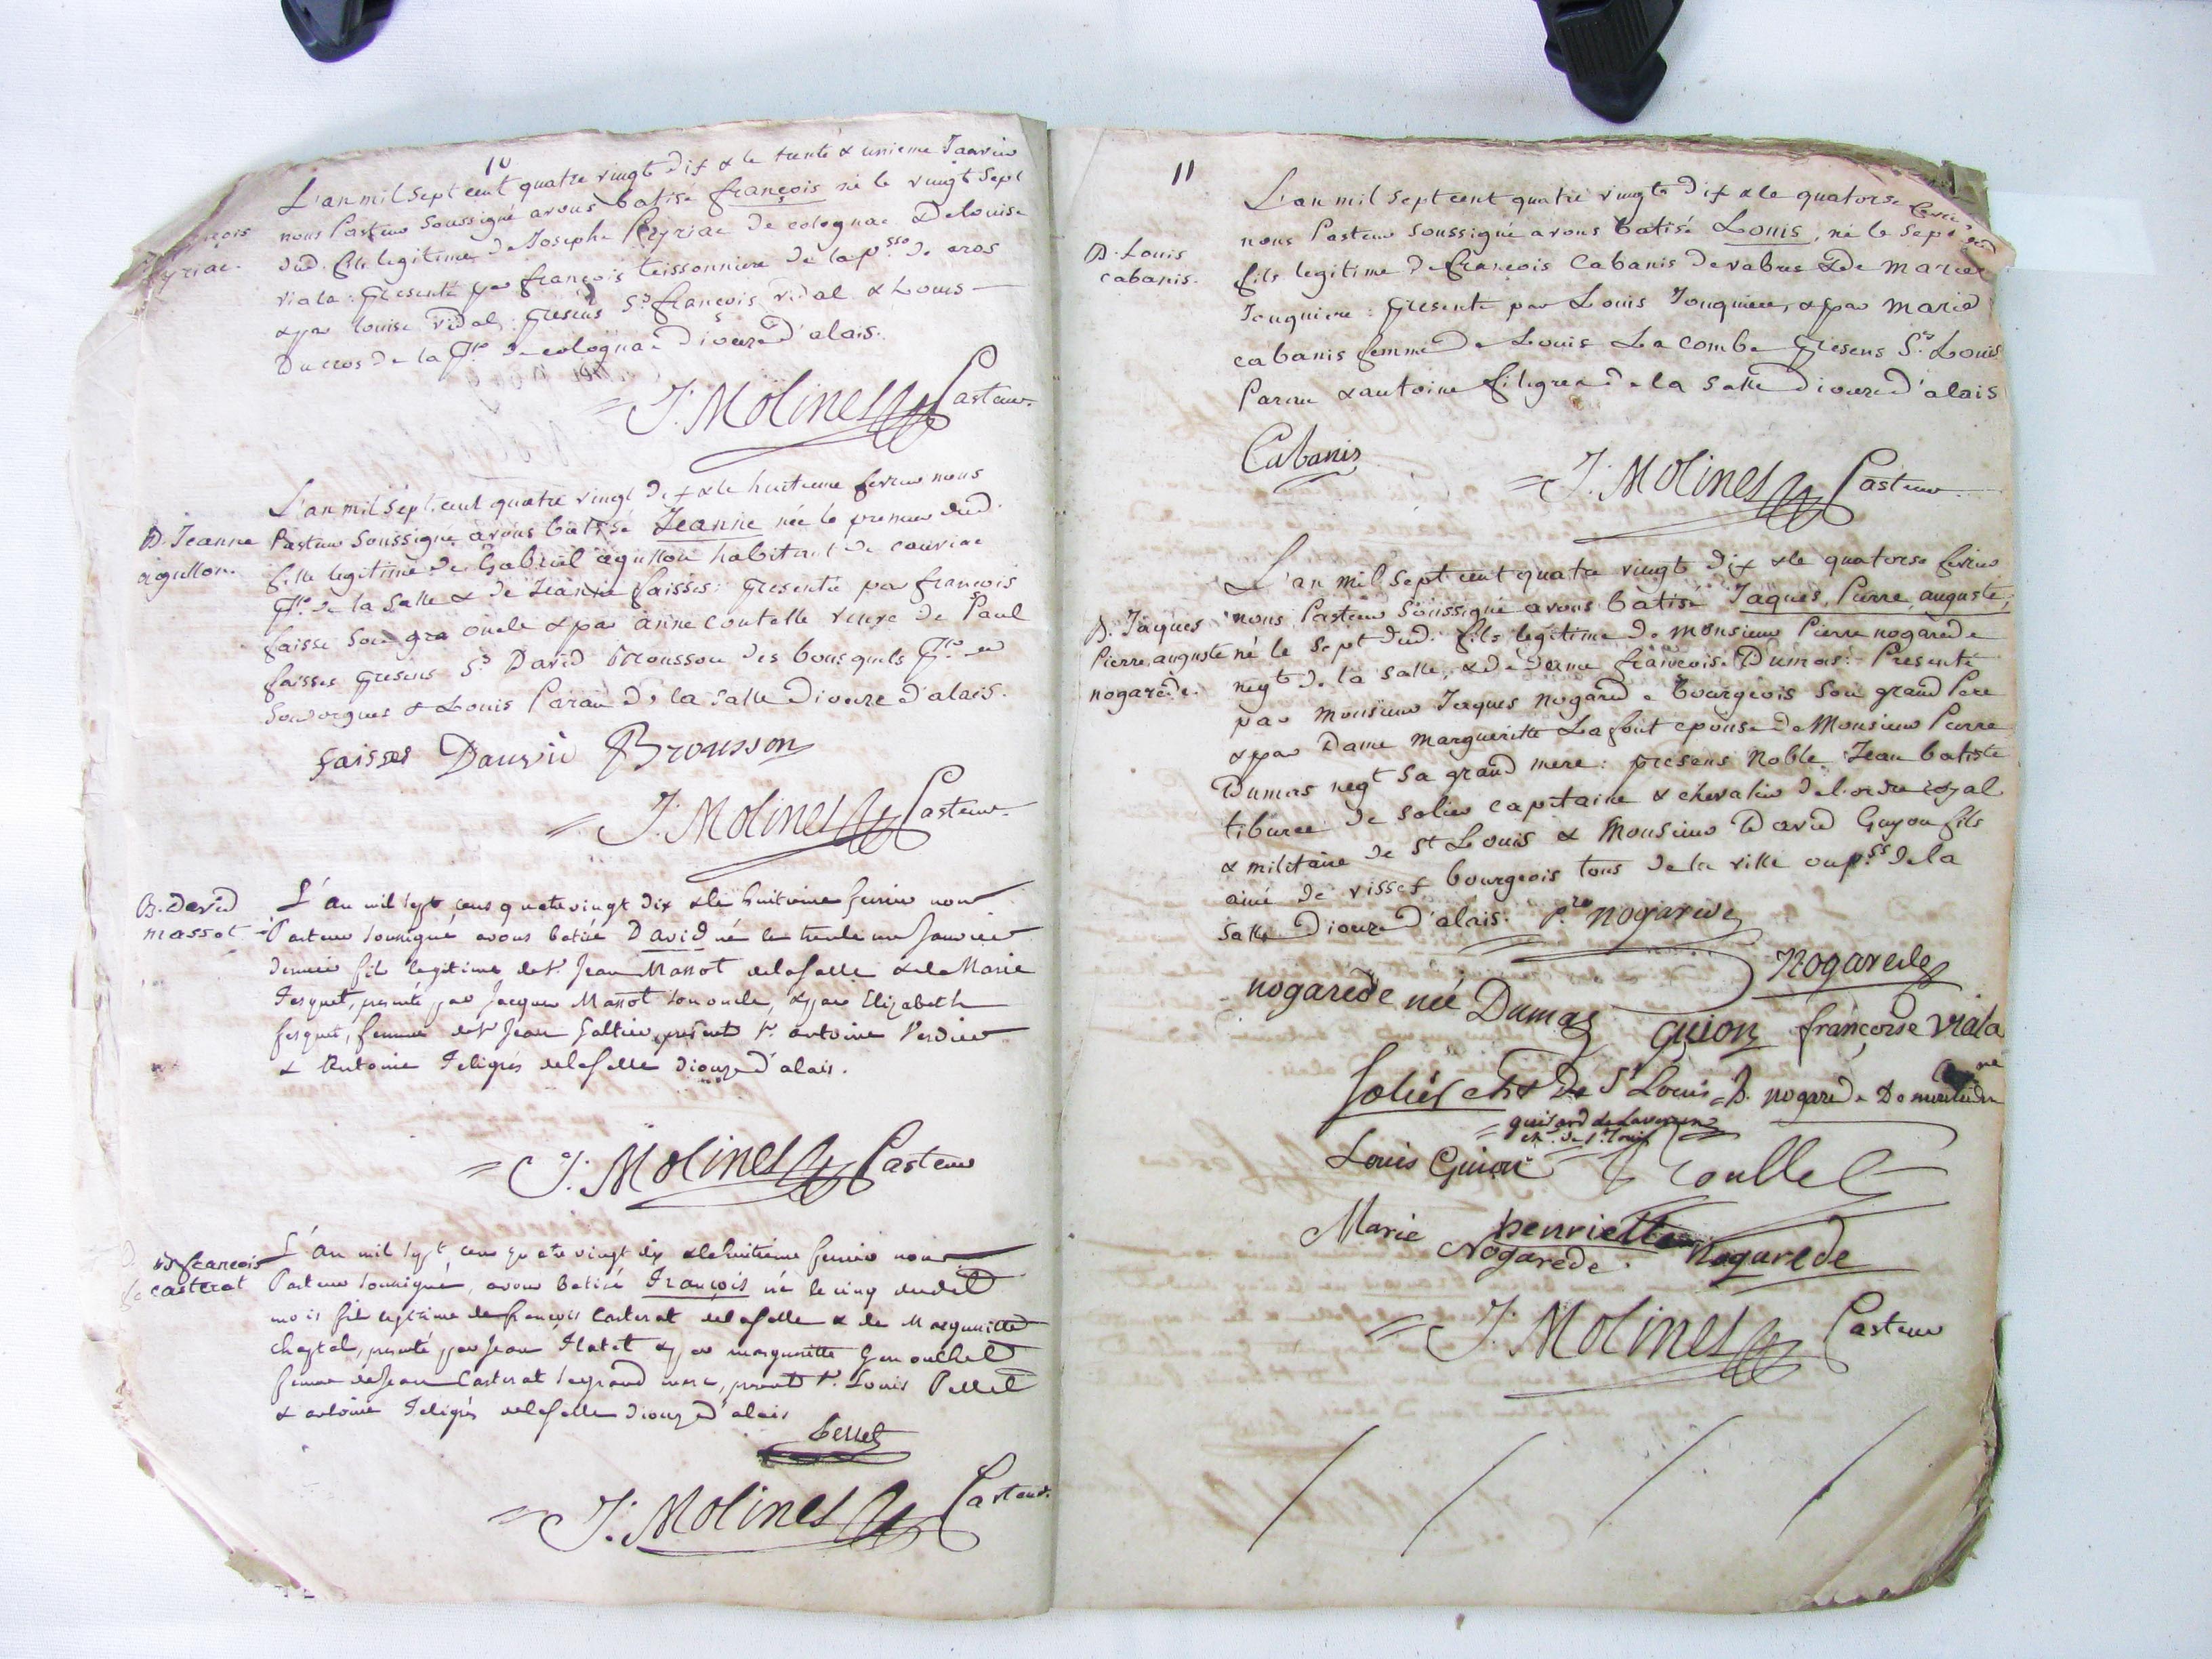 10
L'an mil sept cent quatre vingt dix & le trente & unieme Janvier
nous Pasteur soussigné avons batisé françois né le vingt sept
dud. fils legitime de Josephe Peyriac de colognac & de louise
viala: presenté par françois teissonniere de la p.sse de cros
& par louise vidal: presens Srs françois vidal & Louis
Ducros de la P.sse de colognac dioceze d'alais.
J. Molines Pasteur.
B. Jeanne
aigullon.
L'an mil sept cent quatre vingt dix & le huitieme fevrier nous
Pasteur soussigné avons batisé Jeanne née le premier dud.
fille legitime de Gabriel aigullon habitant de cauviac
P.sse de la Salle & de Jeanne faisses: presentée par françois
faisse son gra oncle & par anne coutelle veuve de Paul
faisses presens Srs David Brousson des bousquets P.sse de
Soudorgues & Louis Paran de la Salle dioceze d'alais.
faisses Dauvid Brousson
J. Molines Pasteur
B. David
massot
L'an mil sept cens quatre vingt dix & le huitieme fevrier nous
Pasteur soussigné avons batisé David né le trente un Janvier
dernier fils legitime de Sr. Jean Massot de laSalle & de Marie
fesquet, presenté par Jacques Massot son oncle, & par Elizabeth
fesquet, femme de Sr Jean Galtier, presents Sr. antoine Verdier
& Antoine Feligrés de laSalle dioceze d'alais.
J. Molines Pasteur
B françois
casterat
L'an mil sept cens quatre vingt dix & le huitieme fevrier nous
Pasteur soussigné, avons batisé François né le cinq dudit
mois fils legitime de françois Casterat de laSalle & de Marguerite
Chaptal, presenté par Jean & par marguerite
femme de Jean Casterat sa grand mere, presents Sr. Louis Pellet
& antoine Feligrés de laSalle dioceze d'alais
Pellet
J. Molines Pasteur
11
B. Louis
cabanis.
L'an mil sept cent quatre vingts dix & le quatorse fevrier
nous Pasteur soussigné avons batisé Louis, né le sept dud
fils legitime de françois Cabanis de vabres & de marie
Jonquiere: presenté par Louis Jonquiere, & par marie
cabanis femme de Louis La combe presens Srs Louis
Paran & antoine filigres de la Salle dioceze d'alais
Cabanis
J. Molines Pasteur
B. Jaques
Pierre, auguste
nogarede.
L'an mil sept cent quatre vingt dix & le quatorse fevrier
nous Pasteur soussigné avons batisé Jaques, Pierre, auguste,
né le sept dud. fils legitime de monsieur Pierre nogarede
negt de la salle, & de dame françoise Dumas: Presenté
par monsieur Jaques nogarede bourgeois son grand Pere
& par Dame marguerite La font epouse de Monsieur Pierre
Dumas negt sa grand mere: presens Noble Jean batiste
tiburce de solier capitaine & chevalier de l'ordre royal
& militaire de St Louis & Monsieur David Guyon fils
ainé de vissec bourgeois tous de la ville ou p.sse de la
Salle Dioceze d'alais.
P.re nogarede
Nogarede
nogarede née Dumas guion françoise viala
Solier chr De St Louis B. nogarede
guisard de Laverun
ch. de St Louis
Louis Guion
Marie henriette
Nogarede. Nogarede
J. Molines Pasteur